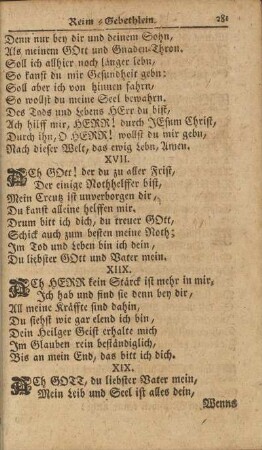 Reim-Gebethlein. 281
Denn nur bey dir und deinem Sohn,
Als meinem GOtt und Gnaden-Thron.
Soll ich allhier noch länger lebn,
So kanst du mir Gesundheit gebn:
Soll aber ich von hinnen fahrn,
So wollst du meine Seel bewahrn.
Des Tods und Lebens HErr du bist,
Ach hilff mir, HERR! durch JEsum Christ,
Durch ihn, O HERR! wollst du mir gebn,
Nach dieser Welt, das ewig Lebn, Amen.
XVII.
ACh GOtt! der du zu aller Frist,
Der einige Nothhelffer bist,
Mein Creutz ist unverborgen dir,
Du kanst alleine helffen mir.
Drum bitt ich dich, du treuer GOtt,
Schick auch zum besten meine Noth:
Im Tod und Leben bin ich dein,
Du liebster GOtt und Vater mein.
XIIX.
ACh HERR kein Stärck ist mehr in mir,
Ich hab und find sie denn bey dir,
All meine Kräffte sind dahin,
Du siehst wie gar elend ich bin,
Dein Heilger Geist erhalte mich
Im Glauben rein beständiglich,
Bis an mein End, das bitt ich dich.
XIX.
ACh GOTT, du liebster Vater mein,
Mein Leib und Seel ist alles dein,
Wenns